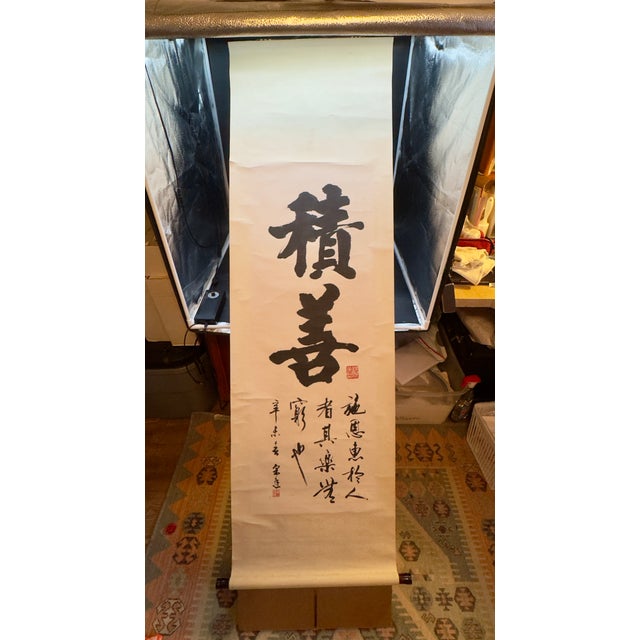 積
善
施恩惠於人
者其樂無
窮也
辛未春